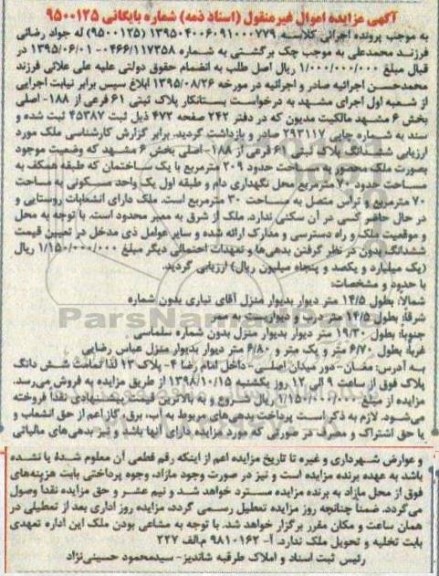 آگهی مزایده اموال غیرمنقول (اسناد ذمه) شماره بایگانی ۹۵۰۰۱۲۵
به موجب پرونده اجرائی کلاسه ۱۳۹۵۰۴۰۰۶۰۹۱۰۰۰۷۷۹ (۹۵۰۰۱۲۵) له جواد رضائی
فرزند محمدعلی به موجب چک برگشتی به شماره ۰۴۶۶/۱۱۷۳۵۸-۱۳۹۵/۰۶/۰۱ در
قبال مبلغ ۱/۰۰۰/۰۰۰/۰۰۰ ریال اصل طلب به انضمام حقوق دولتی علیه علی علائی فرزند
محمدحسن اجرائیه صادر و اجرائیه در مورخه ۱۳۹۵/۰۸/۲۶ ابلاغ سپس برابر نیابت اجرایی
از شعبه اول اجرای مشهد به درخواست بستانکار پلاک ثبتی ۶۱ فرعی از ۱۸۸- اصلی
بخش ۶ مشهد مالکیت مدیون که در دفتر ۲۴۲ صفحه ۴۷۳ ذیل ثبت ۴۵۳۸۷ ثبت شده و
سند به شماره چاپی ۲۹۳۱۱۷ صادر و بازداشت گردید. برابر گزارش کارشناسی ملک مورد
ارزیابی ششدانگ پلاک ثبتی ۶۱ فرعی از ۱۸۸-اصلی بخش ۶ مشهد که وضعیت موجود
بصورت ملک محصور و به مساحت حدود ۲۰۹ مترمربع با یک ساختمان که طبقه همکف به
مساحت حدود ۷۰ مترمربع محل نگهداری دام و طبقه اول یک واحد مسکونی به مساحت
۷۰ مترمربع و تراس متصل به مساحت ۳۰ مترمربع است. ملک دارای انشعابات روستایی و
در حال حاضر کسی در آن سکنی ندارد. ملک از شرق به معبر محدود است. با توجه به محل
و موقعیت ملک و راه دسترسی و مدارک ارائه شده و سایر عوامل ذی مدخل در تعیین قیمت
ششدانگ بدون در نظر گرفتن بدهی‌ها و تعهدات احتمالی دیگر مبلغ ۱/۱۵۰/۰۰۰/۰۰۰ ریال
(یک میلیارد و یکصد و پنجاه میلیون ریال) ارزیابی گردید.
با حدود و مشخصات:
شمالا: بطول ۱۴/۵ متر دیوار بدیوار منزل آقای نیاری بدون شماره
شرقا: بطول ۱۴/۵ متر درب و دیواریست به معبر
جنوبا: بطول ۱۹/۳۰ متر دیوار بدیوار منزل بدون شماره سلماسی
غربا: بطول ۶/۷۰ متر و یک متر و ۶/۸۰ متر دیوار بدیوار منزل عباس رضایی
به آدرس: مغان-دور میدان اصلی- داخل امام رضا ۴- پلاک ۱۳ لذا تمامت شش دانگ
پلاک فوق از ساعت ۹ الی ۱۲ روز یکشنبه ۱۳۹۸/۱۰/۱۵ از طریق مزایده به فروش می‌رسد.
مزایده از مبلغ ۱/۱۵۰/۰۰۰/۰۰۰ ریال شروع و به بالاترین قیمت پیشنهادی نقدا فروخته
می‌شود. لازم به ذکر است پرداخت بدهی‌های مربوط به آب، برق، گاز اعم از حق انشعاب و
یا حق اشتراک و مصرف در صورتی که مورد مزایده دارای آنها باشد و نیز بدهی‌های مالیاتی
و عوارض شهرداری و غیره تا تاریخ مزایده اعم از اینکه رقم قطعی آن معلوم شده یا نشده
باشد به عهده برنده مزایده است و نیز در صورت وجود مازاد، وجوه پرداختی بابت هزینه‌های
فوق از محل مازاد به برنده مزایده مسترد خواهد شد و نیم عشر و حق مزایده نقدا وصول
می‌گردد. ضمنا چنانچه روز مزایده تعطیل رسمی گردد، مزایده روز اداری بعد از تعطیلی در
همان ساعت و مکان مقرر برگزار خواهد شد. با توجه به مشاعی بودن ملک این اداره تعهدی
بابت تخلیه و تحویل ملک ندارد. آ- ۹۸۱۰۱۶۲ م.الف ۲۲۷
رئیس ثبت اسناد و املاک طرقبه شاندیز- سیدمحمود حسینی‌نژاد